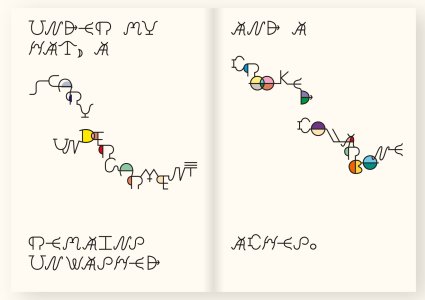 UNDER MY
HAT, A
UNDERGARMENT
REMAINS
UNWASHED
AND A
CROOKED
COLLARBONE
ACHES.